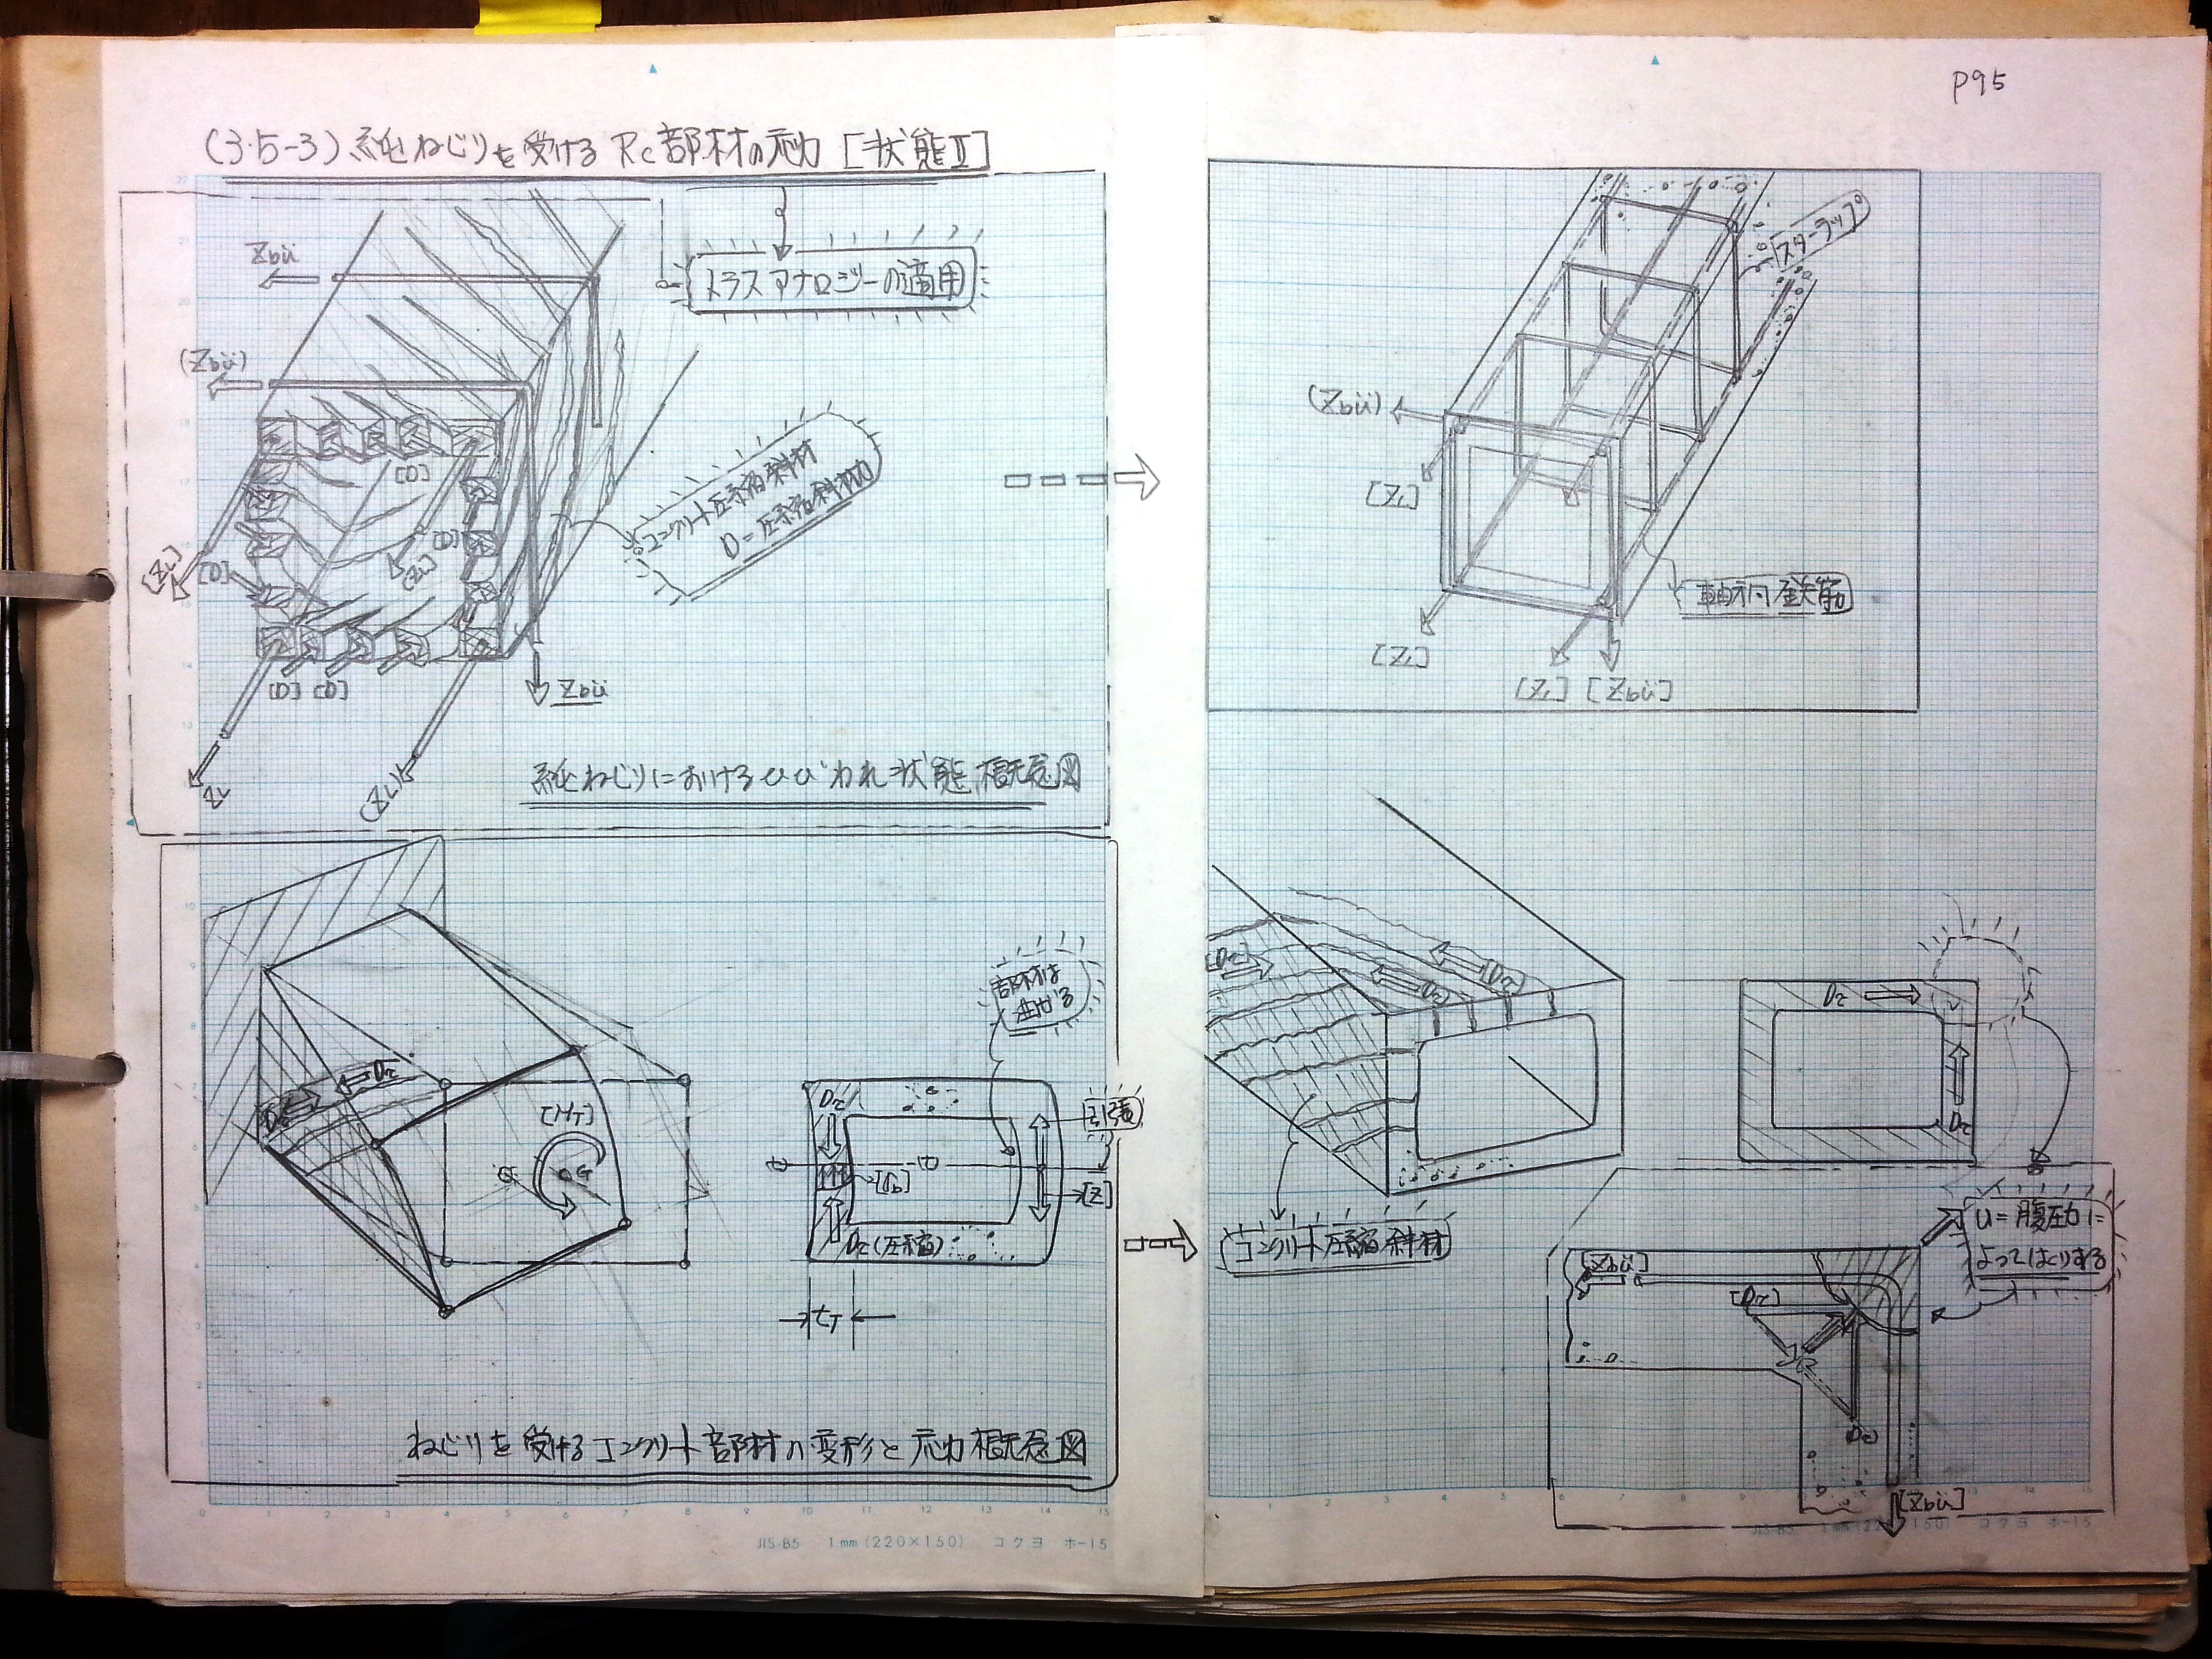 P95
(3・5-3) 純ねじりを受けるRC部材の応力 [状態Ⅱ]
トラスアナロジーの適用
Zbü
(Zbü)
コンクリート圧縮斜材
D=圧縮斜材力
[D]
[D]
[ZL]
[ZL]
[D]
[D] [D]
Zbü
ZL
(ZL)
純ねじりにおけるひびわれ状態概念図
スターラップ
(Zbü)
[ZL]
軸方向鉄筋
[ZL]
[ZL] [Zbü]
部材は
曲がる
Dτ
Dτ
[MT]
G
Dτ
引張
[Z]
Dτ(圧縮)
tT
ねじりを受けるコンクリート部材の変形と応力概念図
[Dτ]
[Dτ]
[Dτ]
コンクリート圧縮斜材
Dτ
Dτ
U=腹圧力に
よってはくりする
[Zbü]
[Dτ]
R
[Dτ]
[Zbü]
JIS-B5 1mm(220×150) コクヨ ホ-15
JIS-B5 1mm(220×150) コクヨ ホ-15